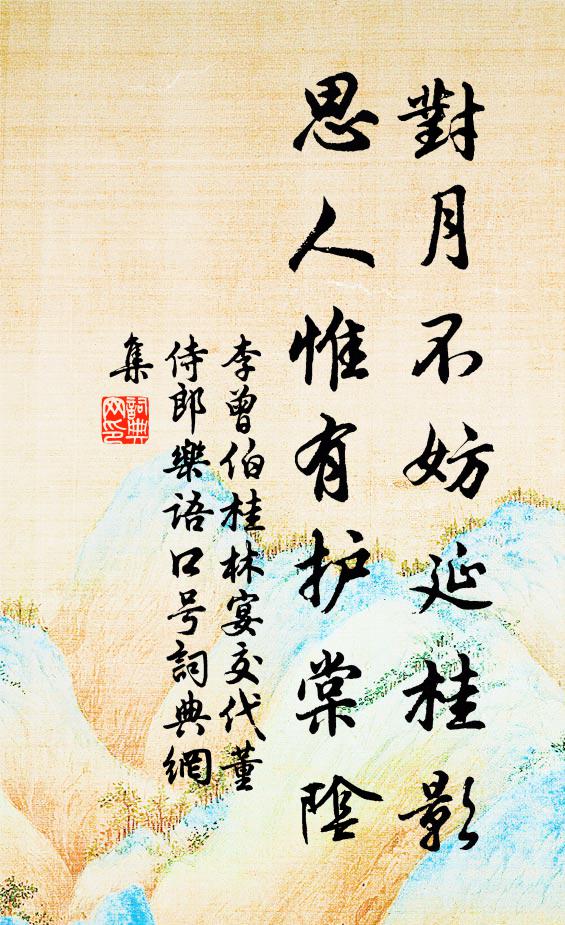 對月不妨延桂影
思人惟有护棠陰
李曾伯桂林宴交代董
侍郎樂语口号詞典網
集
詞典
网印